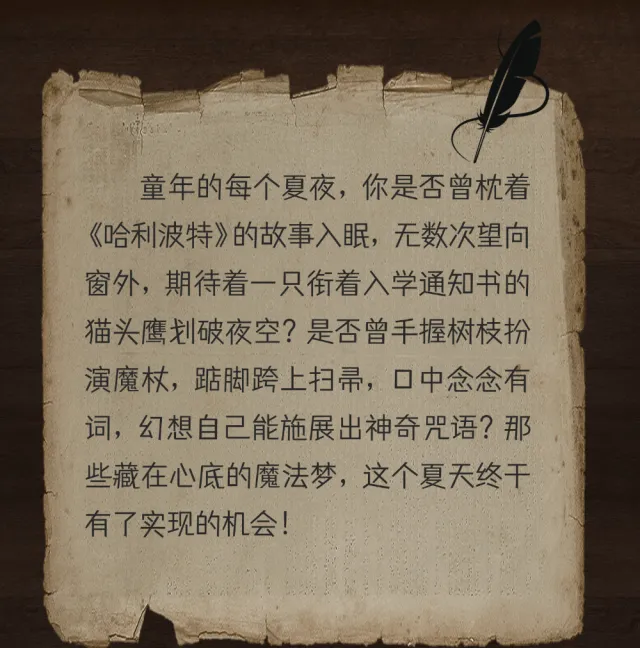 童年的每个夏夜，你是否曾枕着
《哈利波特》的故事入眠，无数次望向
窗外，期待着一只衔着入学通知书的
猫头鹰划破夜空？是否曾手握树枝扮
演魔杖，踮脚跨上扫帚，口中念念有
词，幻想自己能施展出神奇咒语？那
些藏在心底的魔法梦，这个夏天终于
有了实现的机会！